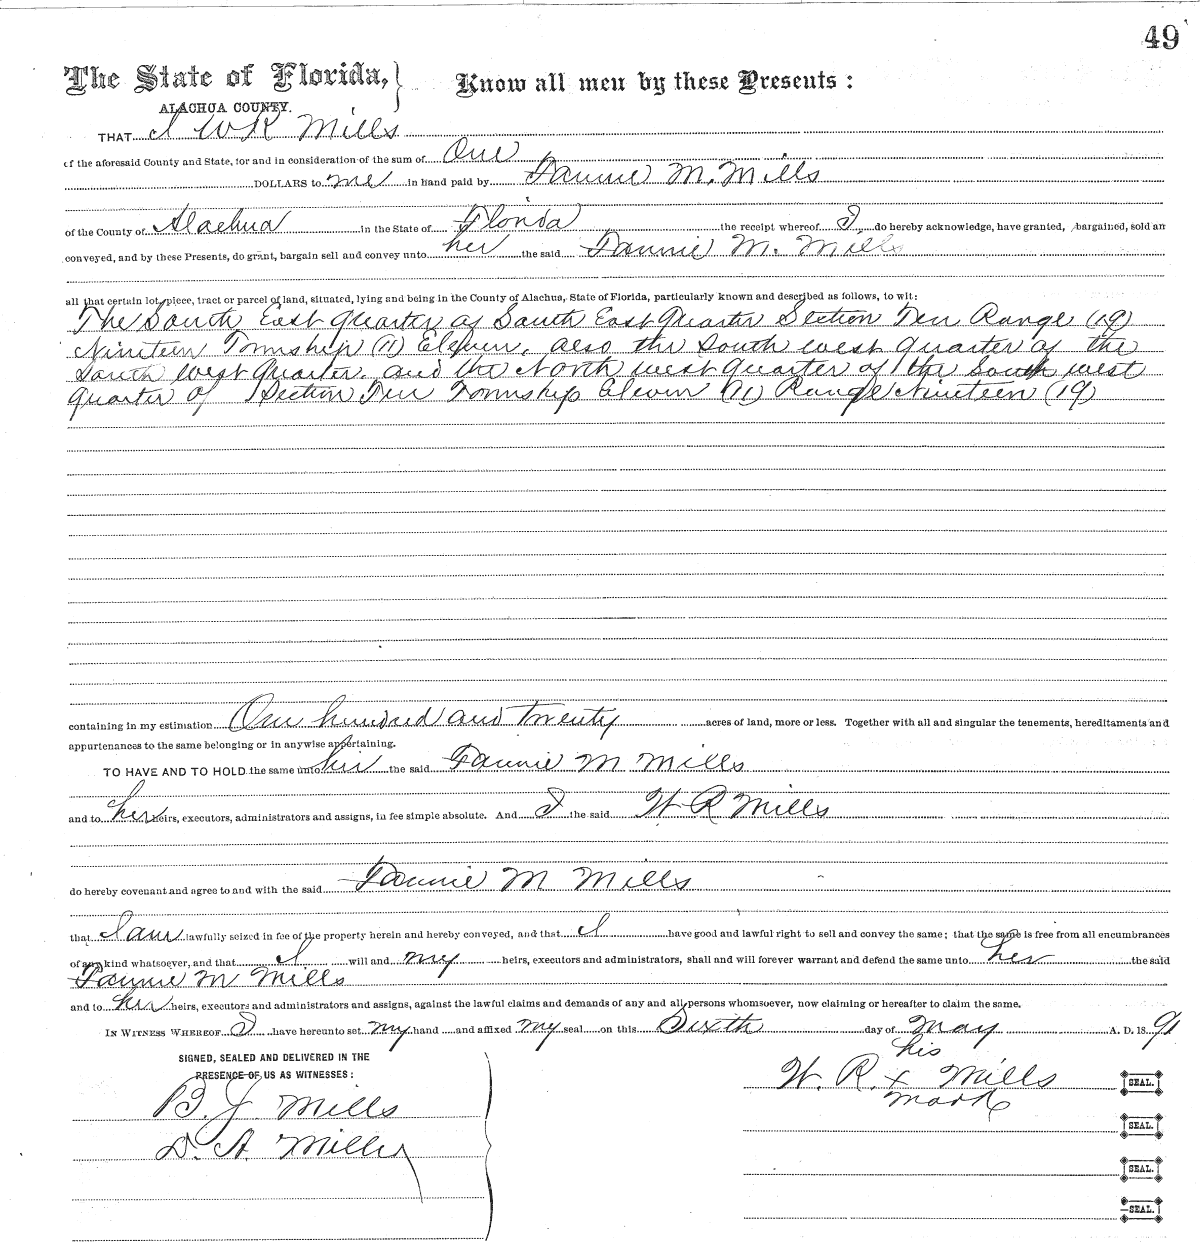 49
The State of Florida, } Know all men by these Presents :
ALACHUA COUNTY.
THAT I W R Mills
of the aforesaid County and State, for and in consideration of the sum of One
DOLLARS to me in hand paid by Fannie M. Mills
of the County of Alachua in the State of Florida the receipt whereof I do hereby acknowledge, have granted, bargained, sold an
conveyed, and by these Presents, do grant, bargain sell and convey unto her the said Fannie M. Mills
all that certain lot, piece, tract or parcel of land, situated, lying and being in the County of Alachua, State of Florida, particularly known and described as follows, to wit:
The South East quarter of South East Quarter Section Ten Range (19)
Nineteen Township (11) Eleven, also the South west quarter of the
South west Quarter, and the North west quarter of the South west
quarter of Section Ten Township Eleven (11) Range Nineteen (19)
containing in my estimation One hundred and twenty acres of land, more or less. Together with all and singular the tenements, hereditaments and
appurtenances to the same belonging or in anywise appertaining.
TO HAVE AND TO HOLD the same unto her the said Fannie M Mills
and to her heirs, executors, administrators and assigns, in fee simple absolute. And I the said W R Mills
do hereby covenant and agree to and with the said Fannie M Mills
that I am lawfully seized in fee of the property herein and hereby conveyed, and that I have good and lawful right to sell and convey the same; that the same is free from all encumbrances
of any kind whatsoever, and that I will and my heirs, executors and administrators, shall and will forever warrant and defend the same unto her the said
Fannie M Mills
and to her heirs, executors and administrators and assigns, against the lawful claims and demands of any and all persons whomsoever, now claiming or hereafter to claim the same.
IN WITNESS WHEREOF I have hereunto set my hand and affixed my seal on this Sixth day of May A. D. 18 91
SIGNED, SEALED AND DELIVERED IN THE
PRESENCE OF US AS WITNESSES :
his
W. R. x Mills SEAL.
mark
B. J. Mills
SEAL.
D. A. Miller
SEAL.
SEAL.